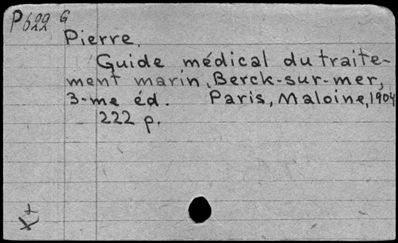 P622 G
Pierre.
Guide médical du traite-
ment marin, Berck-sur-mer,
3-me éd. Paris, Maloine, 1904
222 p.